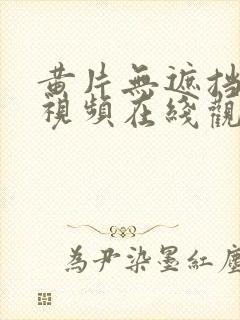 黄片無遮挡
視頻在綫觀
為尹染墨紅塵